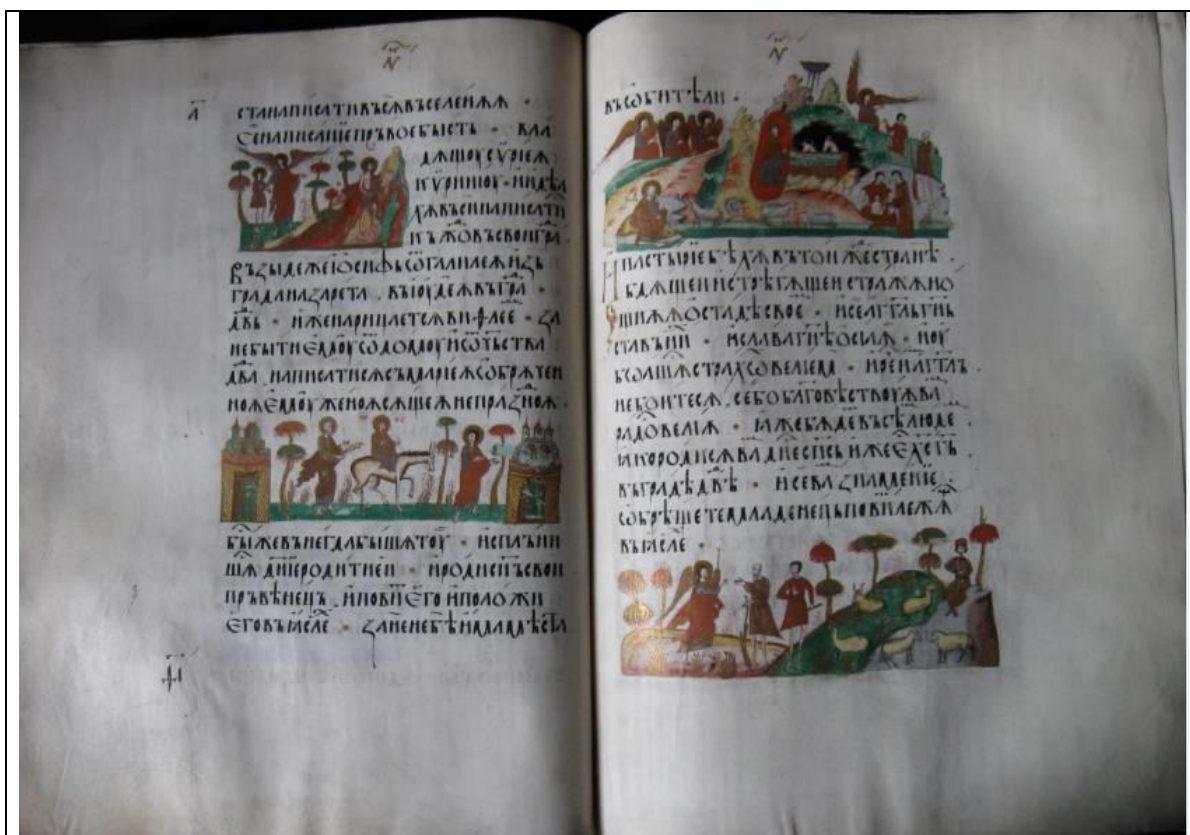 станаписативъсѧвъселенѫѧ ·
Сенаписаниепръвоебысть · вла
дѫщоусѵрїеѫ
кѵринїоу · ї идѣа
хѫвъсинаписати
къждовъсвоиград
Възыдежеїосифьѿгалилеѫизь
граданазарета . въїоудеѫвъград
дв҃ь · иженарицаетсѧвиѳлее · за
небытиемоуѿдомоуиѿчьства
дв҃а . написатисѧсъмарїеѫобрѫчен
ноѫемоуженоѫсѫщеѫнепразноѫ .
быжевънегдабышѧтоу · исплънї
шѧдн҃иеродитиеи · иродисн҃ъсвои
пръвѣнець . иповитегоиположи
еговъꙗсле · занененебѣимъмѣста
въѡбитѣли .
Ипастырїебѣхѫвътоиждестранѣ .
бдѧщеиистрѣгѫщеистражѫно
щнѫѫостадѣсвое · исеагг҃лъгн҃ь
ставънї · иславагн҃ѣосїаѫ · иоу
боашѧстрахомвелїемь · иречимагг҃лъ
небоитесѧ . себоблаговѣствоуѫва
радовелїѫ · ꙗжебѫдевъсѣлюде
ꙗкородисѧвад҃несьсп҃сьижеех҃сгь
въградѣдв҃ѣ · исевазнаменїе
ѡбрѧщетемладенецьповитлежѧ
въꙗсле ·